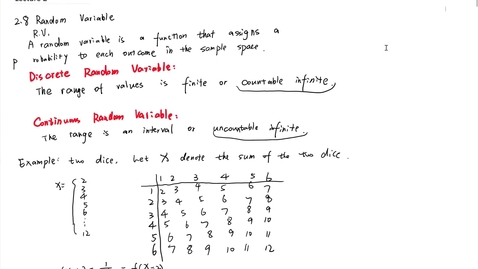 2.8 Random Variable
R.V.
A random variable is a function that assigns a
probability to each outcome in the sample space.
Discrete Random Variable:
The range of values is finite or countable infinite.
Continuous Random Variable:
The range is an interval or uncountable infinite.
Example: two dice. Let X denote the sum of the two dice.
X= 2
3
4
5
6
⋮
12
1 2 3 4 5 6
1 2 3 4 5 6 7
2 3 4 5 6 7 8
3 4 5 6 7 8 9
4 5 6 7 8 9 10
5 6 7 8 9 10 11
6 7 8 9 10 11 12